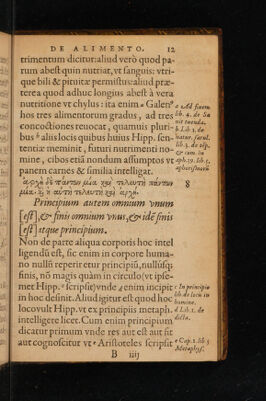 DE ALIMENTO. 12
trimentum dicitur: aliud verò quod pa-
rum abest quin nutriat, vt sanguis: vtri-
que bili & pituitæ permistus: aliud præ-
terea quod adhuc longius abest à vera
nutritione vt chylus: ita enim a Galenus
hos tres alimentorum gradus, ad tres
concoctiones reuocat, quamuis pluri-
bus b aliis locis quibus huius Hipp. sen-
tentiæ meminit, futuri nutrimenti no-
mine, cibos etiã nondum assumptos vt
panem carnes & similia intelligat.
a Ad finem
lib. 4. de Sa
nit tuenda.
b Lib. 3. de
natur. facul.
lib. 3. de
& com. in
aph. 19. lib. 5.
aphorismorũ
ἀρχὴ δὲ πάντων μία καὶ τελευτὴ πάντων
μία. ἡ αὐτὴ τελευτὴ καὶ ἀρχή.
8
Principium autem omnium vnum
[est], & finis omnium vnus, & idẽ finis
[est] atque principium.
Non de parte aliqua corporis hoc intel
ligendũ est, sic enim in corpore huma-
no nullũ reperir etur principiũ, nullusq;
finis, nõ magis quàm in circulo (vt ipse-
met Hipp. c scripsit) vnde d enim incipit
hic desinit. Aliud igitur est quod hoc
loco vult Hipp. vt ex principiis metaph.
intelligere licet. Cum enim principium
dicatur primum vnde res aut est aut fit
aut cognoscitur vt e Aristoteles scripsit
c In principio
lib. de locis in
homine.
d Lib. 1. de
diæta.
e Cap. 1. lib. 5
Metaphys.
B iiij